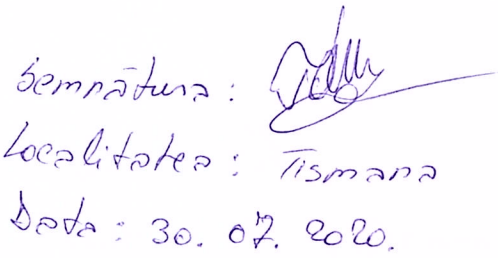 Semnătura:
Localitatea: Tismana
Data: 30. 07. 2020.